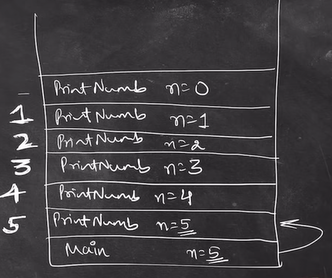 Print Numb n=0
1 Print Numb n=1
2 Print Numb n=2
3 Print Numb n=3
4 Print Numb n=4
5 Print Numb n=5
Main n=5